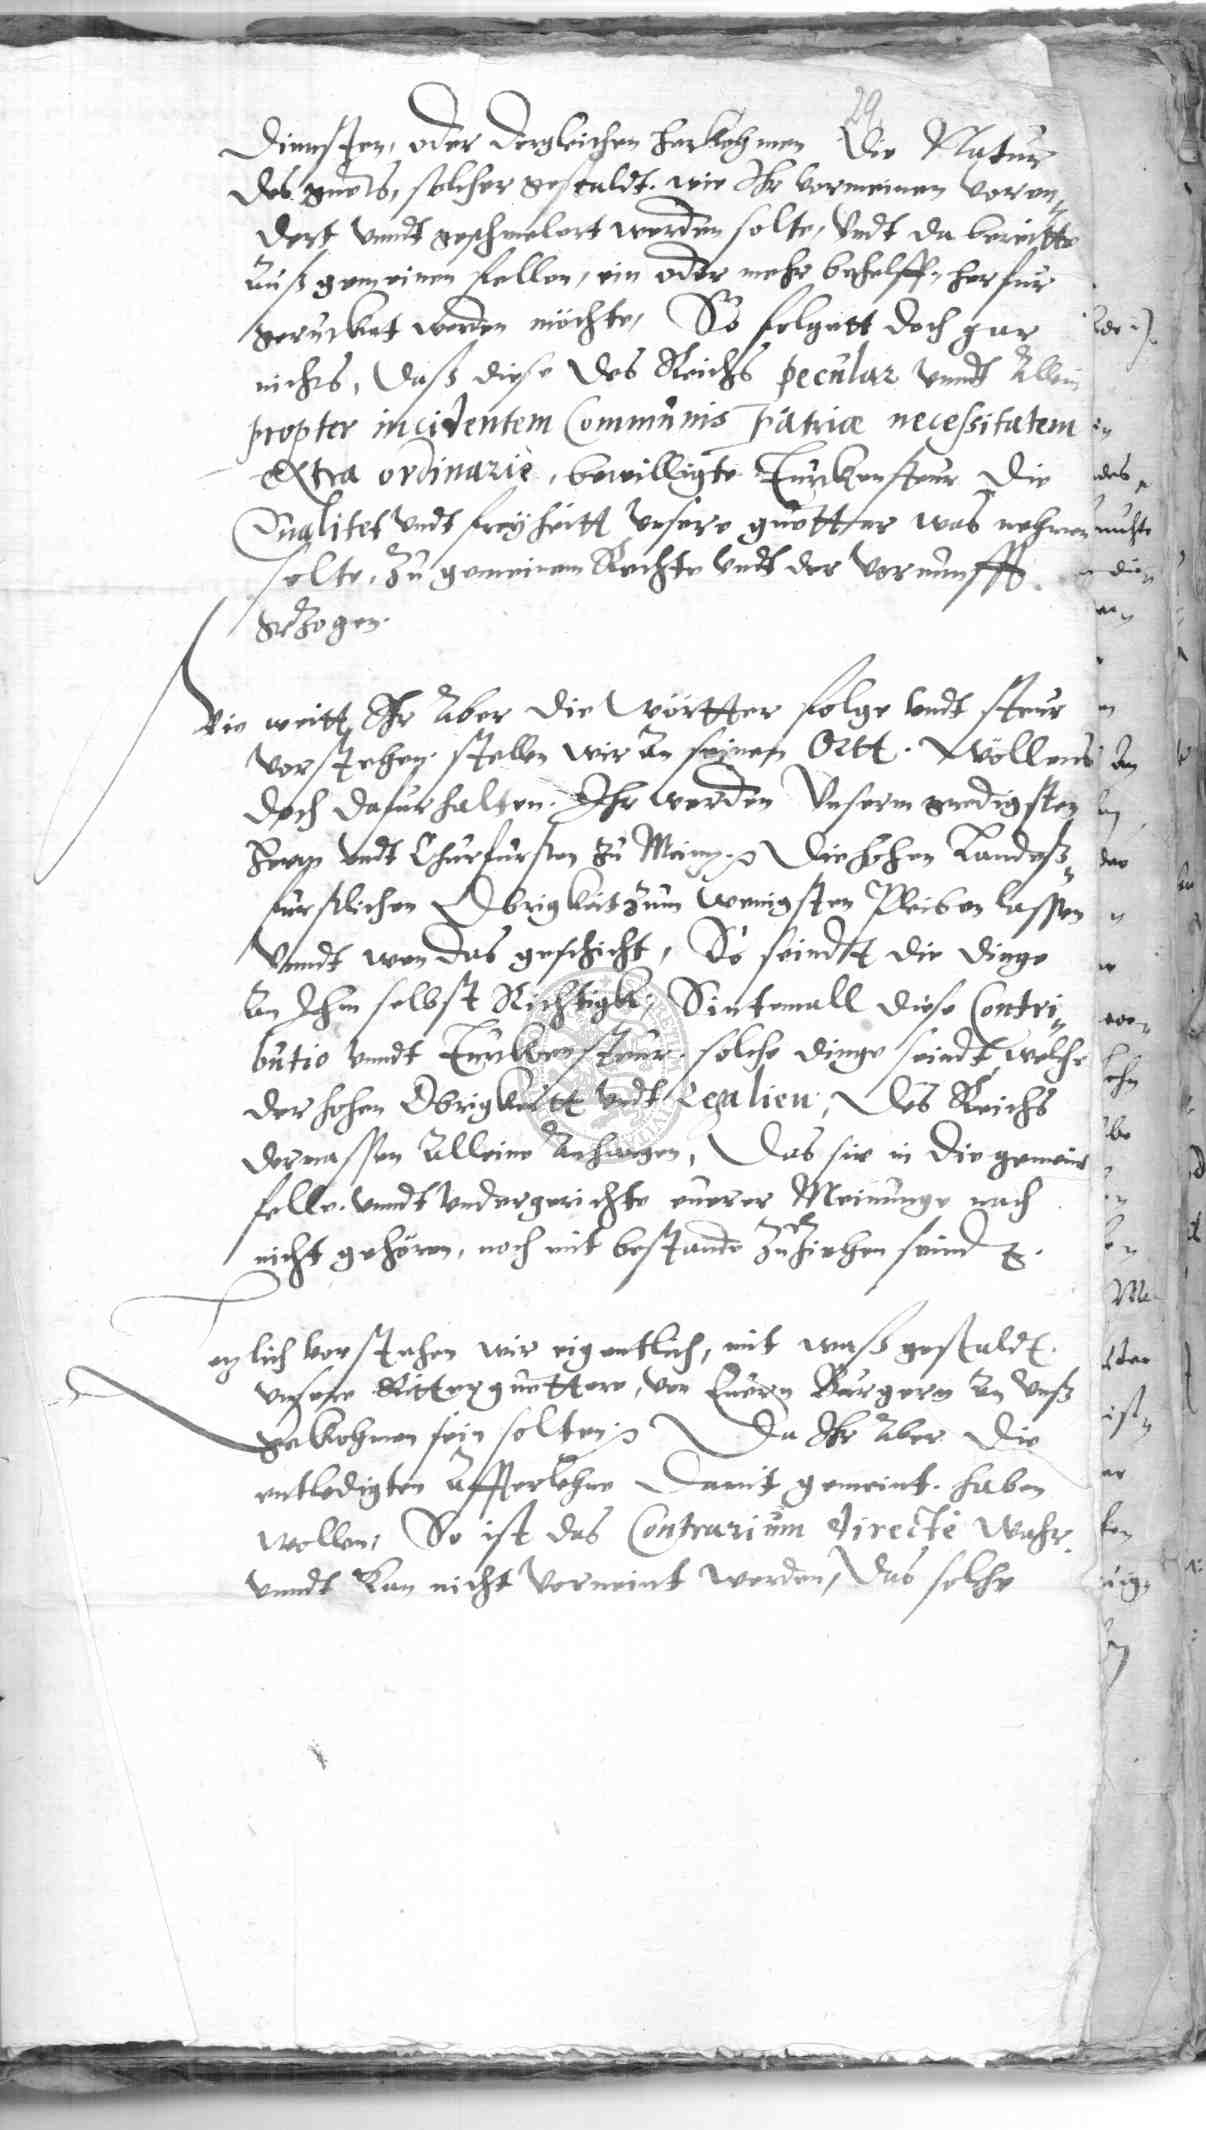 29
diensten, oder dergleichen herkohmen die Natur
des guets, solcher gestaldt. wie Ihr vormeinen voren„
dert vnndt geschmelert werden solte, Vndt da bereitts
Auß gemeinen fellen, ein oder mehr behelff, herfur
gerucket werden möchte, So folgett doch gar
nichts, Daß diese des Reichs pecular vnndt Allein
propter incidentem Communis Patriæ necessitatem
extra ordinariè, bewilligte Turckensteur die
Qualitet Vndt freyheitt Vnsere guetter was nehmen
solte, Zu gemeinem Rechte Vndt der Vornunfft
gezogen.
Wie weitt Ihr Aber die wörtter folge vndt steur
vorstehen. stellen wir An seinen Ortt. Wöllens
doch dafur halten. Ihr werden Vnserm gnedigsten
Herrn Vndt Churfursten zu Meintz die hohen Landeß„
furstlichen Obrigkeit zum wenigsten Pleiben lassen
Vnndt wen das geschicht, So seindtt die dinge
An Ihm selbst Richtigk, Sintemall diese Contri„
butio vnndt Turckensteur. solche dinge seindt, welche
der hohen Obrigkeitt Vndt Regalien, Des Reichs
dermassen Alleine Anhangen, Das sie in die gemeine
felle. vnndt Vndergerichte euerer Meinunge nach
nicht gehören, noch mit bestande Zu Ziehen seind
Letzlich vorstehen wir eigentlich, mit waß gestaldt.
Vnsere Ritterguettere, von Euern Burgern An Vnß
gekohmen sein solten Da Ihr Aber die
entledigten Affterlehne Damit gemeint. haben
wollen, So ist das Contrarium directè wahr.
Vnndt Kan nicht Vorneint werden, Das solche